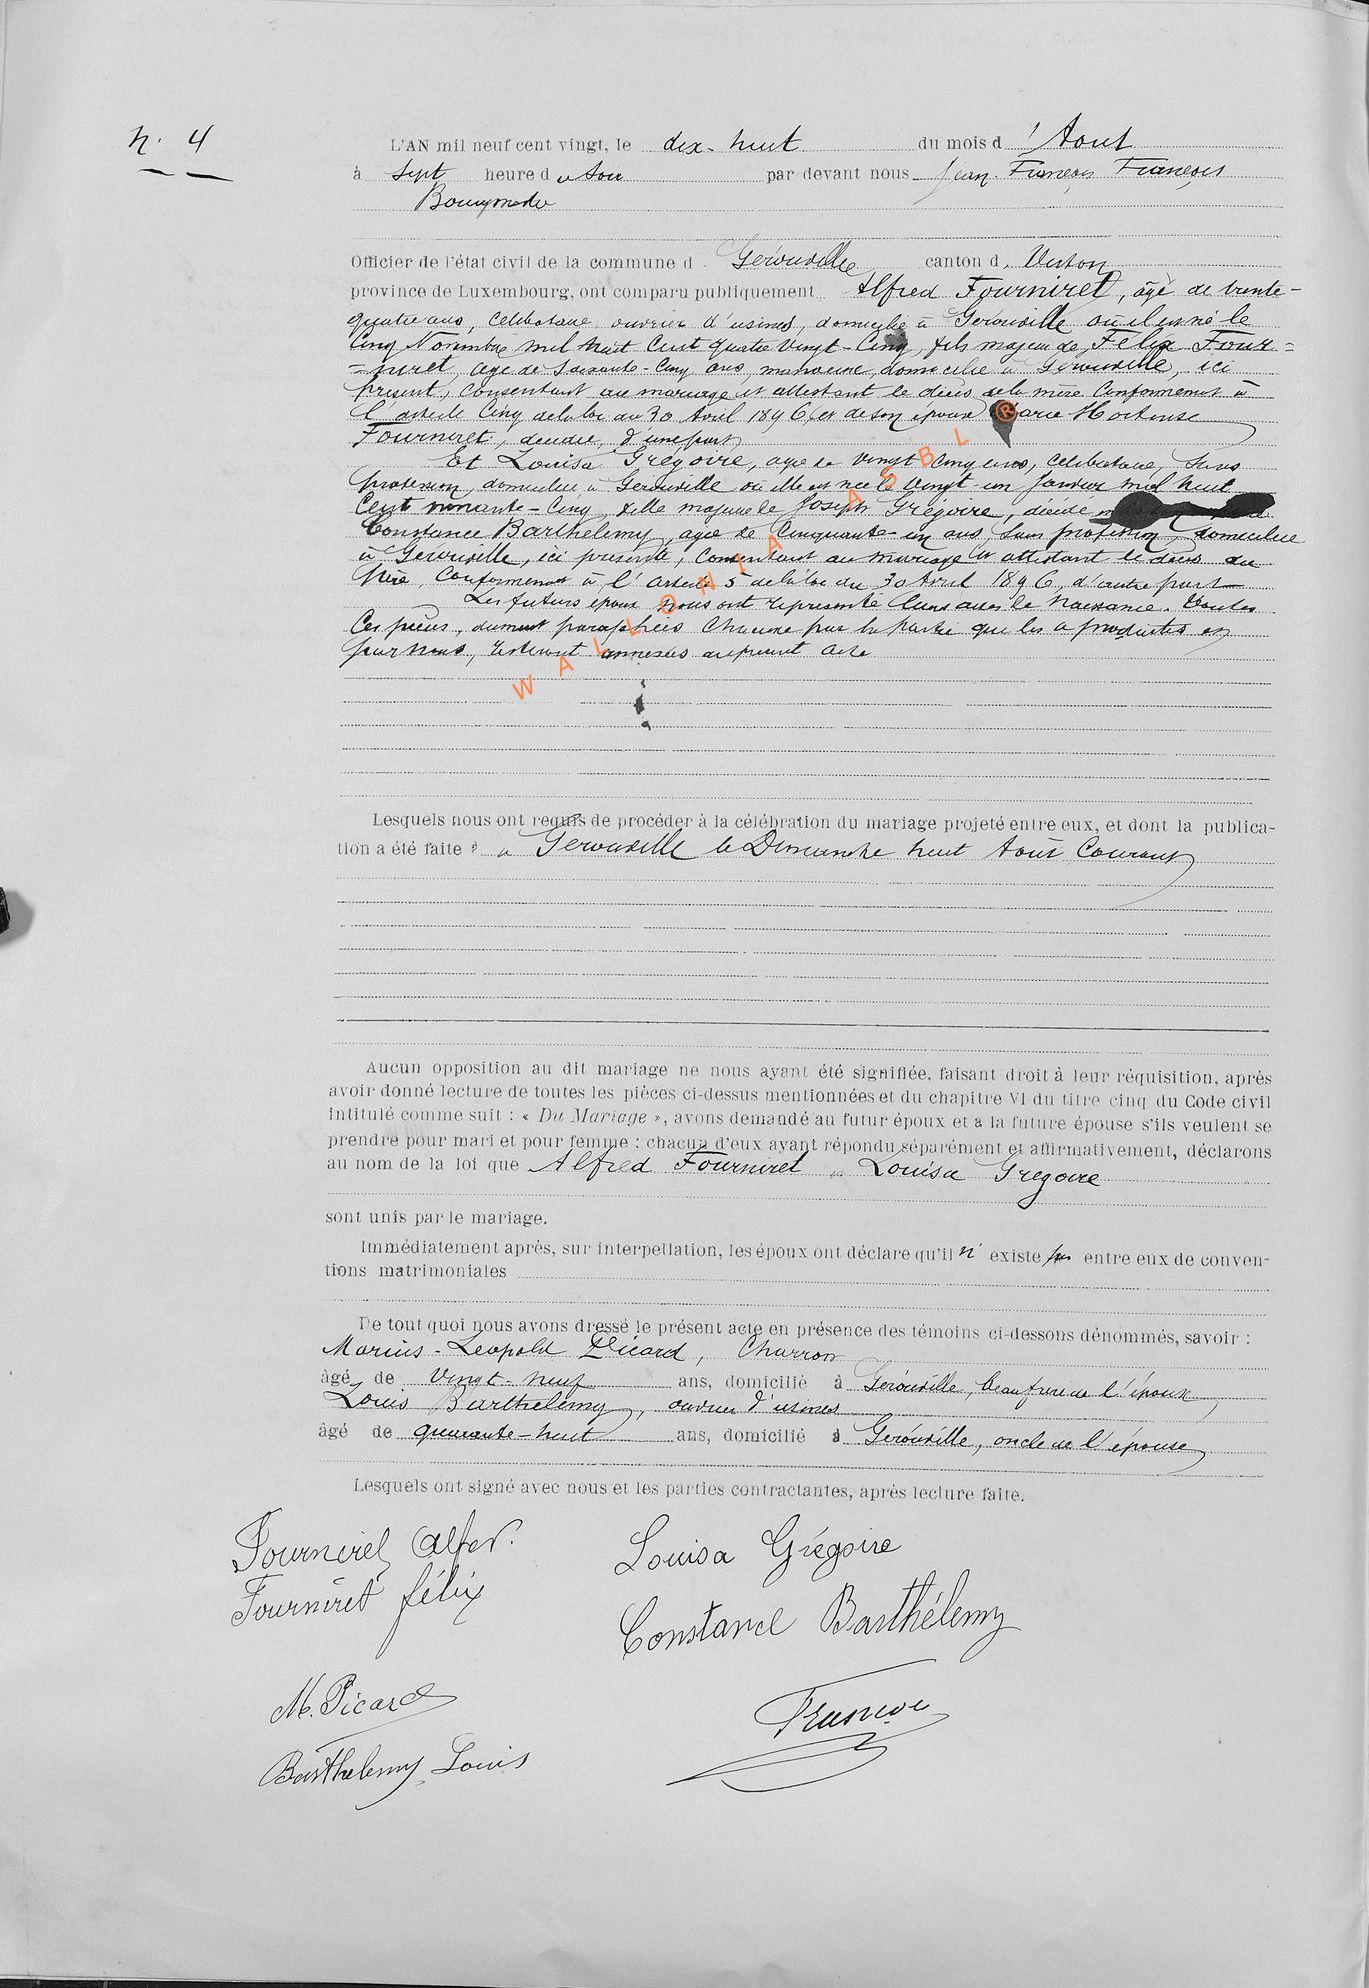 N. 4
L'AN mil neuf cent vingt, le dix-huit du mois d'Aout
à sept heure du Soir par devant nous Jean François François
Bourgmestre
Officier de l'état civil de la commune d Gérouville canton d Virton
province de Luxembourg, ont comparu publiquement Alfred Fourniret, âgé de trente-
quatre ans, célibataire ouvrier d'usines, domicilié à Gérouville où il est né le
cinq Novembre mil huit cent quatre vingt-cinq, fils majeur de Félix Four=
=niret, agé de soixante-cinq ans, manoeuvre, domicilié à Gérouville, ici
présent, consentant au mariage et attestant le décès de la mère conformément à
l'article cinq de la loi du 30 Avril 1896, et de son épouse Marie Hortense
Fourniret, décédée, d'une part
Et Louisa Grégoire, agée de vingt cinq ans, célibataire, sans
profession, domiciliée à Gérouville où elle est née le vingt-un Janvier mil huit
cent nonante-cinq, fille majeure de Joseph Grégoire, décédé
Constance Barthélemy, agée de cinquante-un ans, sans profession, domiciliée
à Gérouville, ici présente, consentant au mariage et attestant le décès du
père, conformément à l'article 5 de la loi du 30 Avril 1896, d'autre part
Les futurs époux nous ont représenté leurs actes de naissance. Toutes
ces pièces, dument paraphées chacune par la partie qui les a produites et
par nous, resteront annexées au présent acte
WALLONIA ASBL ®
Lesquels nous ont requis de procéder à la célébration du mariage projeté entre eux, et dont la publica-
tion a été faite à Gérouville le Dimanche huit Aout Courant
Aucun opposition au dit mariage ne nous ayant été signifiée, faisant droit à leur réquisition, après
avoir donné lecture de toutes les pièces ci-dessus mentionnées et du chapitre VI du titre cinq du Code civil
intitulé comme suit : « Du Mariage », avons demandé au futur époux et a la future épouse s'ils veulent se
prendre pour mari et pour femme : chacun d'eux ayant répondu séparément et affirmativement, déclarons
au nom de la loi que Alfred Fourniret et Louisa Grégoire
sont unis par le mariage.
Immédiatement après, sur interpellation, les époux ont déclare qu'il n' existe pas entre eux de conven-
tions matrimoniales
De tout quoi nous avons dressé le présent acte en présence des témoins ci-dessons dénommés, savoir :
Marius-Léopold Picard, Charron
âgé de vingt-neuf ans, domicilié à Gérouville, beau frère de l'époux
Louis Barthélemy, ouvrier d'usines
âgé de quarante-huit ans, domicilié à Gérouville, oncle de l'épouse
Lesquels ont signé avec nous et les parties contractantes, après lecture faite.
Fourniret Alfer. Louisa Grégoire
Fourniret félix Constance Barthélemy
M. Picard François
Barthelemy Louis